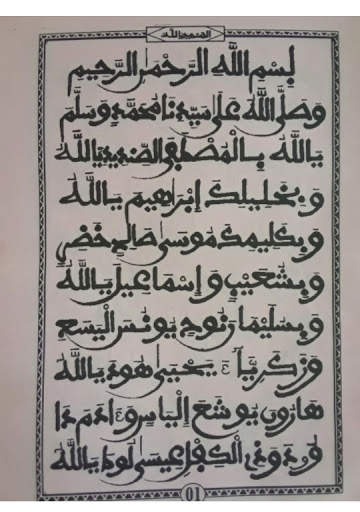 بِسْمِ اللَّهِ الرَّحْمٰنِ الرَّحِيمِ
وَصَلَّى اللَّهُ عَلَى سَيِّدِنَا مُحَمَّدٍ وَسَلَّمَ
يَا اللَّهُ بِالْمُصْطَفَى يَا اللَّهُ
وَبِخَلِيلِكَ إِبْرَاهِيمَ يَا اللَّهُ
وَبِكَلِيمِكَ مُوسَى صَالِحٍ خَضِرٍ
وَبِشُعَيْبٍ وَإِسْمَاعِيلَ يَا اللَّهُ
وَبِسُلَيْمَانَ نُوحٍ يُونُسَ الْيَسَعِ
وَزَكَرِيَّاءَ يَحْيَى هُودٍ يَا اللَّهُ
هَارُونَ يُوشَعَ إِلْيَاسٍ وَءَادَمَ دَا
وُدَ وَذِي الْكِفْلِ عِيسَى لُوطَ يَا اللَّهُ
01